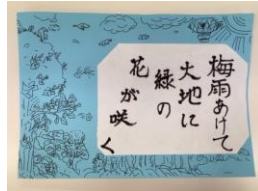 梅雨あけて
大地に
緑の
花が咲く